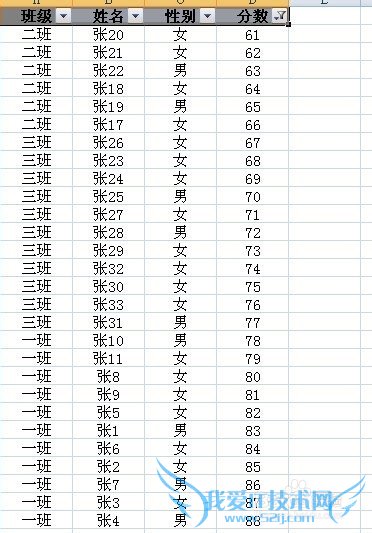 班级 姓名 性别 分数
二班 张20 女 61
二班 张21 女 62
二班 张22 男 63
二班 张18 女 64
二班 张19 男 65
二班 张17 女 66
三班 张26 女 67
三班 张23 女 68
三班 张24 女 69
三班 张25 男 70
三班 张27 女 71
三班 张28 男 72
三班 张29 女 73
三班 张32 女 74
三班 张30 女 75
三班 张33 女 76
三班 张31 男 77
一班 张10 男 78
一班 张11 女 79
一班 张8 女 80
一班 张9 女 81
一班 张5 女 82
一班 张1 男 83
一班 张6 女 84
一班 张2 女 85
一班 张7 男 86
一班 张3 女 87
一班 张4 男 88
我爱IT技术网
www.52ij.com